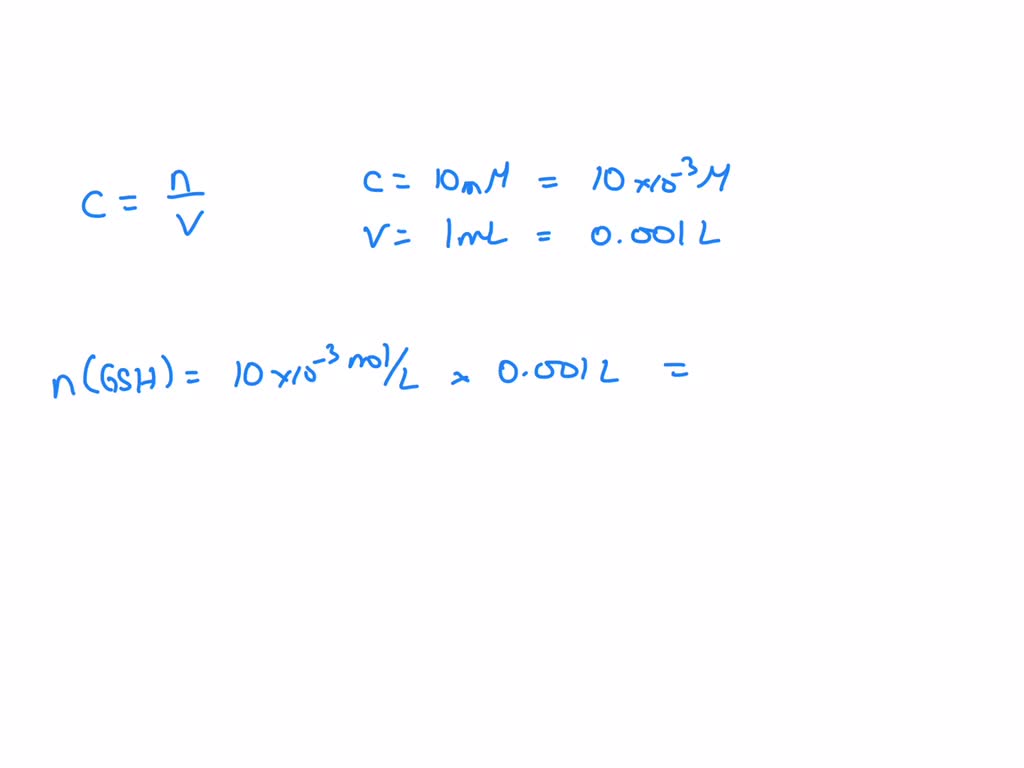 C = n/V
C = 10mM = 10×10⁻³M
V = 1mL = 0.001L
n(GSH) = 10×10⁻³ mol/L × 0.001L =